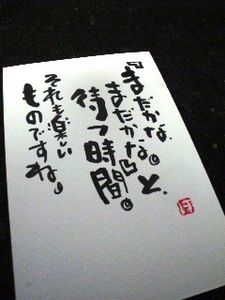 『まだかな。
まだかな。』と、
待つ時間。
それも楽しい
ものですね。